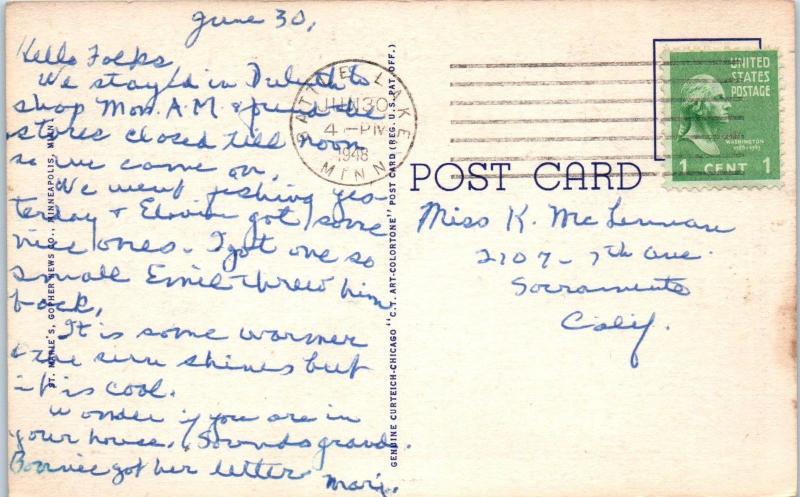 June 30,
Hello Folks,
We stayed in Duluth to
shop Mon. A.M. & found the
stores closed till noon
so we came on.
We went fishing yes-
terday & Elwin got some
nice ones. I got one so
small Emil threw him
back.
It is some warmer
& the sun shines but
it is cool.
Wonder if you are in
your house. Sounds grand.
Bonnie got her letter
Marj.
ST. MARIE'S, GOPHER NEWS CO., MINNEAPOLIS, MINN.
GENUINE CURTEICH-CHICAGO "C.T. ART-COLORTONE" POST CARD (REG. U.S. PAT. OFF.)
BATTLE LAKE
JUN 30
4 - PM
1948
MINN
UNITED
STATES
POSTAGE
WASHINGTON
1789-1797
1 CENT 1
POST CARD
Miss K. McLennan
2107 - 7th Ave.
Sacramento
Calif.